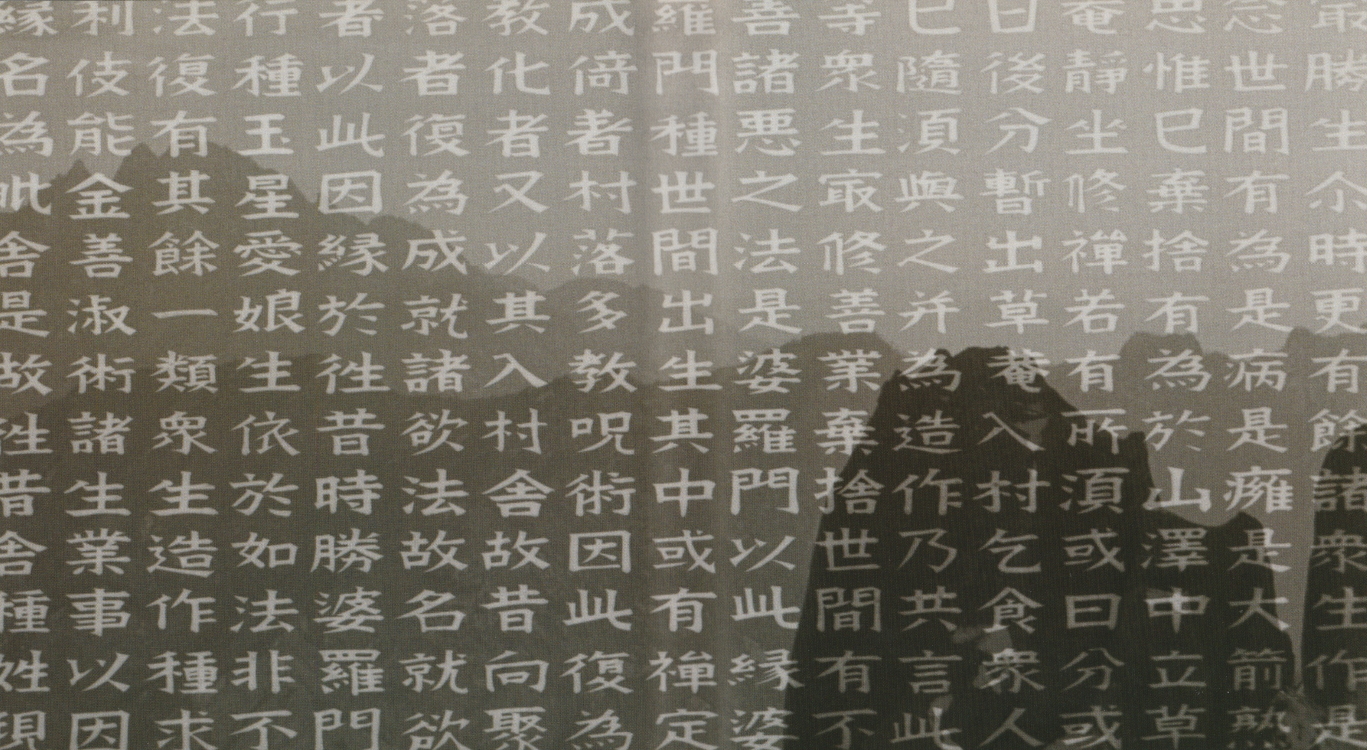 最勝生尒時更有餘諸衆生作是
念世間有為是病是癰是大箭熟
思惟巳棄捨有為於山澤中立草
菴靜坐修禪若有所須或日分或
日後分暫出草菴入村乞食衆人
巳隨須與之并為造作乃共言此
等衆生㝡修善業棄捨世間有不
善諸悪之法是婆羅門以此縁婆
羅門種世間出生其中或有禪定
成倚著村落多教呪術因此復為
教化者又以其入村舍故昔向聚
落者復為成就諸欲法故名就欲
者以此因縁於徃昔時勝婆羅門
行種玉星愛娘生依於如法非不
法復有其餘一類衆生造作種求
利伎能金善淑術諸生業事以因
縁名為毗舍是故徃昔舍種姓現